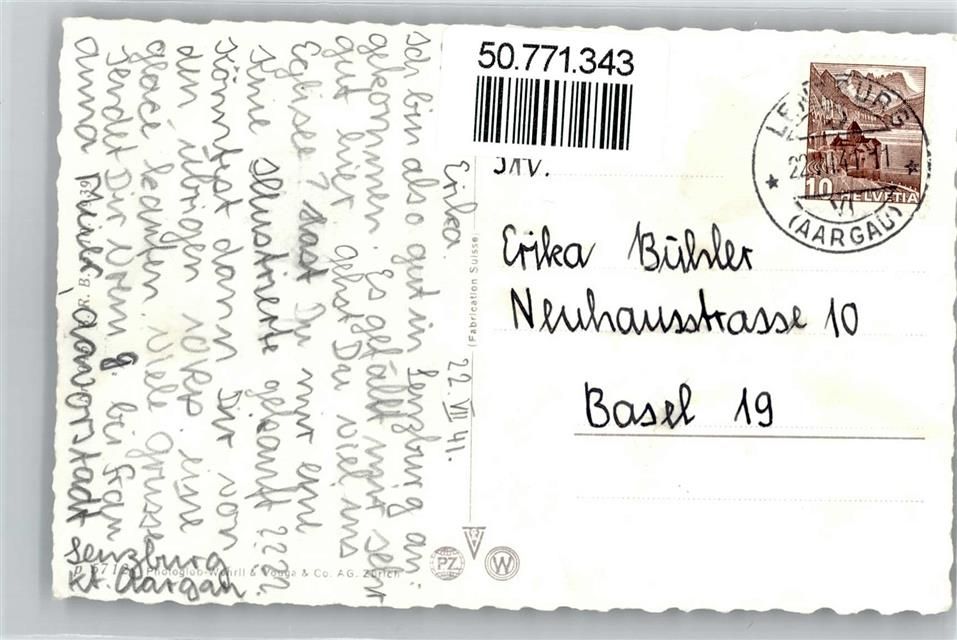 50.771.343
22. VII 41.
Erika.
Ich bin also gut in Lenzburg an-
gekommen. Es gefällt mir sehr
gut hier. gehst Du viel ins
Eglisee? Hast Du mir eine
kleine Illustrierte gekauft????
Könntest dann Dir von
den übrigen 10Rp eine
glace kaufen. Viele Grüsse
sendet Dir Urs g. bei Fam.
Lenzburg
Kt. Aargau
Photoglob-Wehrli & Vouga & Co. AG. Zürich
(Fabrication Suisse)
PZ
W
LENZBURG
22. VII 41-11
(AARGAU)
10 HELVETIA
Erika Bühler
Neuhausstrasse 10
Basel 19